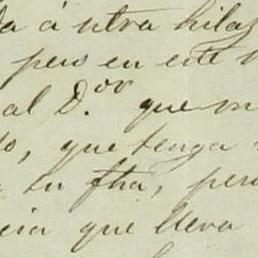 a á ntra hilaz
pero en este
al D.^or que m
o, que tenga
tu fha, pero
cia que lleva